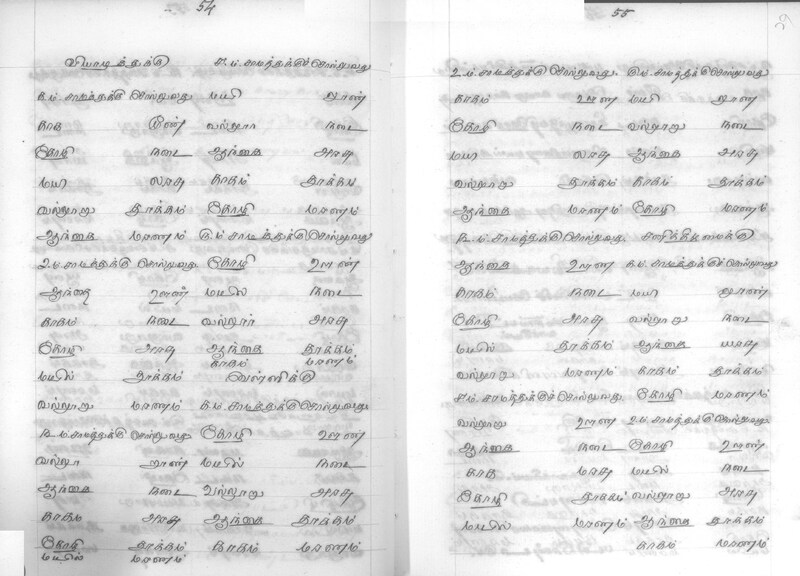 54
வியாழத்துக்கு
க.ம். சாமத்துக்கு சொல்லுவது
காக ஊண்
கோழி நடை
மயி அரசு
வல்லூறு தூக்கம்
ஆந்தை மரணம்
உ.ம். சாமத்துக்கு சொல்லுவது
ஆந்தை ஊண்
காகம் நடை
கோழி அரசு
மயில் தூக்கம்
வல்லூறு மரணம்
ந.ம். சாமத்துக்கு சொல்லுவது
வல்லூ ஊண்
ஆந்தை நடை
காகம் அரசு
கோழி தூக்கம்
மயில் மரணம்
ச.ம். சாமத்துக்கு சொல்லுவது
மயி ஊண்
வல்லூர் நடை
ஆந்தை அரசு
காகம் தூக்க
கோழி மரணம்
ரு.ம். சாமத்துக்கு சொல்லுவது
கோழி ஊண்
மயில் நடை
வல்லூர் அரசு
ஆந்தை தூக்கம்
காகம் மரணம்
வெள்ளிக்கு
க.ம். சாமத்துக்கு சொல்லுவது
கோழி ஊண்
மயில் நடை
வல்லூறு அரசு
ஆந்தை தூக்கம்
காகம் மரணம்
55
உ.ம். சாமத்துக்கு சொல்லுவது
காகம் ஊண்
கோழி நடை
மயி அரசு
வல்லூறு தூக்கம்
ஆந்தை மரணம்
ந.ம். சாமத்துக்கு சொல்லுவது
ஆந்தை ஊண்
காகம் நடை
கோழி அரசு
மயில் தூக்கம்
வல்லூறு மரணம்
ச.ம். சாமத்துக்கு சொல்லுவது
வல்லூறு ஊண்
ஆந்தை நடை
காக அரசு
கோழி தூக்கம்
மயில் மரணம்
ரு.ம். சாமத்துக்கு சொல்லுவது
மயி ஊண்
வல்லூறு நடை
ஆந்தை அரசு
காகம் தூக்கம்
கோழி மரணம்
சனிக்கிழமைக்கு
க.ம். சாமத்துக்கு சொல்லுவது
மயி ஊண்
வல்லூறு நடை
ஆந்தை அரசு
காகம் தூக்கம்
கோழி மரணம்
உ.ம். சாமத்துக்கு சொல்லுவது
கோழி ஊண்
மயில் நடை
வல்லூறு அரசு
ஆந்தை தூக்கம்
காகம் மரணம்